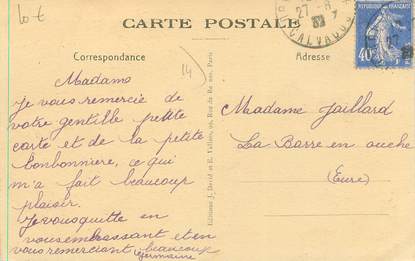 10 €
CARTE POSTALE
27 - 8
CALVADOS
REPUBLIQUE FRANÇAISE
40c
Correspondance
Adresse
14
Madame
je vous remercie de
votre gentille petite
carte et de la petite
bonbonniere, ce qui
m'a fait beaucoup
plaisir.
Je vous quitte en
vous embrassant et en
vous remerciant beaucoup
Germaine
Editions J. David et E. Vallois, 99, Rue de Rennes, Paris
Madame Jaillard
La Barre en ouche
(Eure)